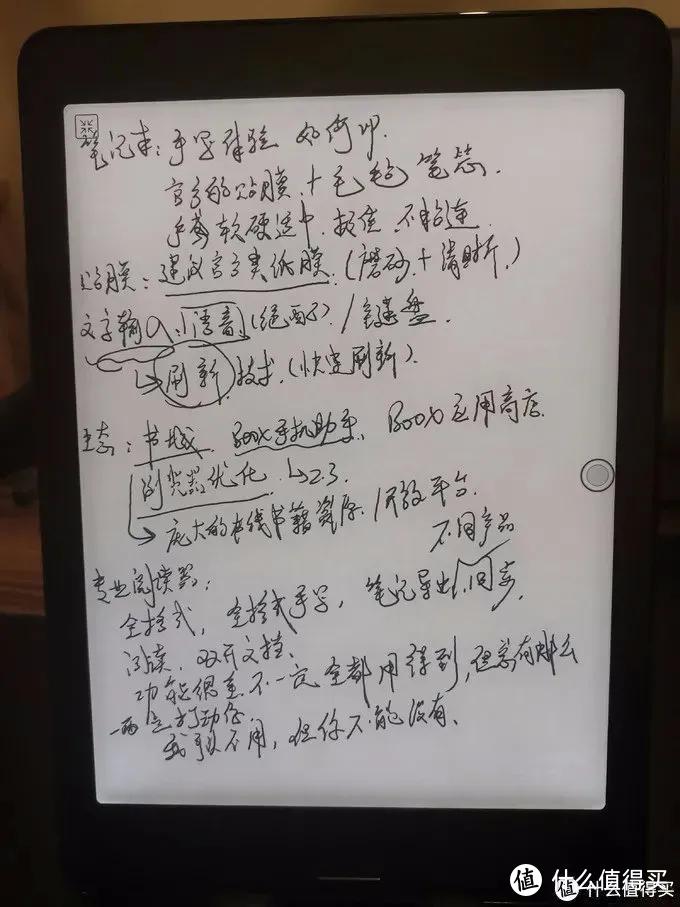 笔记本：手写体验 如何
官方的贴膜＋毛毛笔芯.
软硬适中 不粘连
贴膜：建议官方类纸膜.（磨砂＋清晰.）
文字输入.语音(绝配)/键盘.
↳刷新 技术.(快速刷新).
生态：书城. Boox手机助手、Boox应用商店.
浏览器优化. ↳2.3
↳庞大的在线书籍资源. 开放平台.
不同产品
专业阅读器：
全格式，全格式手写，笔记导出.同步,
阅读、双开文档、
功能很全.不一定全都用得到,但总有那么
一两点打动你.
我可以不用，但你不能没有、
值 什么值得买
值 什么值得买